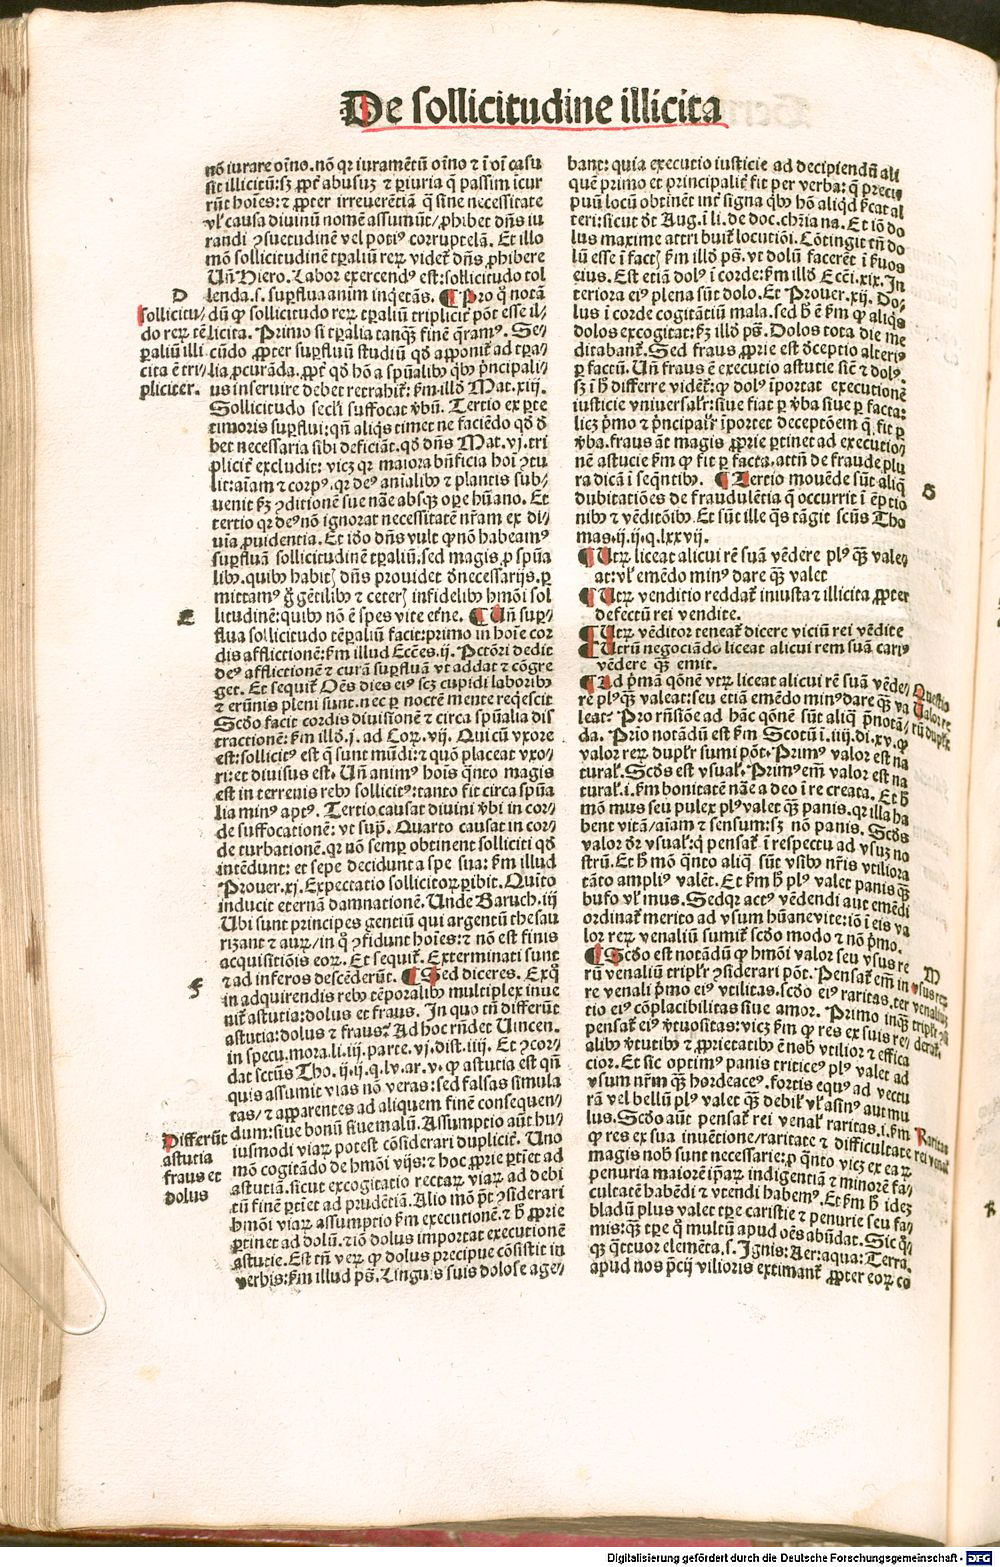 De sollicitudine illicita
nō iurare oīno. nō qꝛ iuramētū oīno ⁊ ī oī casu
sit illicitū: sꝫ ꝓpť abusuꝫ ⁊ ꝑiuria q̄ passim īcur
rūt hoīes: ⁊ ꝓpter irreuerētiā q̄ sine necessitate
vľ causa diuinū nomē assumūt/ ꝓhibet dn̄s iu
randi ꝯsuetudinē vel potiꝰ corruptelā. Et illo
mō sollicitudinē tꝑaliū reꝝ videť dn̄s ꝓhibere
Un̄ Hiero. Labor exercendꝰ est: sollicitudo tol
lenda. s. suꝑflua anim inq̇etās. ¶ Pro qͦ notā
dū ꝙ sollicitudo reꝝ tꝑaliū tripliciť pōt esse il⸗
licita. Primo si tꝑalia tanqꝫ finē q̄ramꝰ. Se⸗
cūdo ꝓpter suꝑfluū studiū qď apponiť ad tꝑa⸗
lia ꝓcurāda. ꝓpť qď hō a spūalibꝰ qͥbꝰ pͥncipali⸗
us inseruire debet retrahiť: ẜm illď Mat. xiij.
Sollicitudo secľi suffocat v̄bū. Tertio ex ꝑte
timoris suꝑflui: qn̄ aliqͥs timet ne faciēdo qď ď
bet necessaria sibi deficiāt. qď dn̄s Mat. vj. tri
pliciť excludit: vicꝫ qꝛ maiora bn̄ficia hoī ꝯtu
lit: aīam ⁊ corpꝰ. qꝛ deꝰ aīalibꝰ ⁊ plantis sub⸗
uenit ẜꝫ ꝯditionē sue naē absqꝫ oꝑe hūano. Et
tertio qꝛ deꝰ nō ignorat necessitatē nr̄am ex di⸗
uīa ꝓuidentia. Et iďo dn̄s vult ꝙ nō habeamꝰ
suꝑfluā sollicitudinē tꝑaliū. sed magis ꝓ spūa
libꝰ. quibꝰ habitꝭ dn̄s prouidet ď necessarijs. ꝑ
mittamꝰ ġ gētilibꝰ ⁊ ceterꝭ infidelibꝰ hmōi sol
licitudinē: quibꝰ nō ē spes vite eťne. ¶ Un̄ suꝑ⸗
flua sollicitudo tēꝑaliū facit: primo in hoīe cor
dis afflictionē: ẜm illud Ecc̄es. ij. Pctōri dedit
deꝰ afflictionē ⁊ curā suꝑfluā vt addat ⁊ cōgre
get. Et sequiť. Oēs dies eiꝰ scꝫ cupidi laboribꝰ
⁊ erūnis pleni sunt. nec ꝑ noctē mente reqͥescit
Scďo facit cordis diuisionē ⁊ circa spūalia dis
tractionē: ẜm illď. j. ad Coꝝ. vij. Qui cū vxore
est: sollicitꝰ est q̄ sunt mūdi: ⁊ quō placeat vxo⸗
ri: et diuisus est. Un̄ animꝰ hoīs qͣnto magis
est in terrenis rebꝰ sollicitꝰ: tanto fit circa spūa
lia minꝰ aptꝰ. Tertio causat diuini v̄bi in cor⸗
de suffocationē: vt supͣ. Quarto causat in cor⸗
de turbationē. qꝛ nō semꝑ obtinent solliciti qď
intēdunt: et sepe decidunt a spe sua: ẜm illud
Prouer. xj. Expectatio sollicitoꝝ ꝑibit. Quīto
inducit eternā damnationē. Unde Baruch. iij
Ubi sunt principes gentiū qui argentū thesau
rizant ⁊ auꝝ/ in qͦ ꝯfidunt hoīes: ⁊ nō est finis
acquisitiōis eoꝝ. Et sequiť. Exterminati sunt
⁊ ad inferos descēderūt. ¶ Sed diceres. Ex qͦ
in adquirendis rebꝰ tēporalibꝰ multiplex inue
niť astutia: dolus et fraus. In quo tn̄ differūt
astutia: dolus ⁊ fraus? Ad hoc rn̄det Uincen.
in specu. mora. li. iij. parte. vj. dist. iiij. Et ꝯcor⸗
dat sctūs Tho. ij. ij. q. lv. ar. v. ꝙ astutia est qn̄
quis assumit vias nō veras: sed falsas simula
tas/ ⁊ apparentes ad aliquem finē consequen⸗
dum: siue bonū siue malū. Assumptio aūt hu⸗
iusmodi viaꝝ potest cōsiderari dupliciť. Uno
mō cogitādo de hmōi vijs: ⁊ hoc ꝓprie ꝑtīet ad
astutiā. sicut excogitatio rectaꝝ viaꝝ ad debi
tū finē ꝑtīet ad prudētiā. Alio mō pōt ꝯsiderari
hmōi viaꝝ assumptio ẜm executionē. ⁊ ħ ꝓprie
ꝑtinet ad dolū. ⁊ iō dolus importat executionē
astutie. Est tn̄ veꝝ ꝙ dolus precipue cōsistit in
verbis: ẜm illud ps̄. Linguis suis dolose age⸗
D
sollicitu⸗
do reꝝ tē
ꝑaliū illi
cita ē tri⸗
pliciter.
E
F
Differūt
astutia
fraus et
dolus
bant: quia executio iusticie ad decipiendū ali
quē primo et principaliť fit per verba: q̄ precī
puū locū obtinēt inť signa qͥbꝰ hō aliqď ẜcat al
teri: sicut ďt Aug. ī li. de doc. chr̄iana. Et iō do
lus maxime attribuiť locutiōi. Cōtingit tn̄ do
lū esse ī factꝭ ẜm illď ps̄. vt dolū facerēt ī ẜuos
eius. Est etiā dolꝰ ī corde: ẜm illď Ecc̄i. xix. In
teriora eiꝰ plena sūt dolo. Et Prouer. xij. Do⸗
lus ī corde cogitātiū mala. sed ħ ē ẜm ꝙ aliqͥs
dolos excogitat: ẜꝫ illď ps̄. Dolos tota die me
ditabanť. Sed fraus ꝓprie est ďceptio alteriꝰ
ꝑ factū. Un̄ fraus ē executio astutie sic̄ ⁊ dolꝰ.
sꝫ ī ħ differre videť: ꝙ dolꝰ īportat executionē
iusticie vniuersaľr: siue fiat ꝑ v̄ba siue ꝑ facta:
licꝫ pͥmo ⁊ pͥncipaľr īportet deceptōem q̄ fit ꝑ
v̄ba. fraus aūt magis ꝓprie ꝑtinet ad executio⸗
nē astucie ẜm ꝙ fit ꝑ facta. attn̄ de fraude plu
ra dicā ī seqn̄tibꝰ. ¶ Tertio mouēde sūt aliq̄
dubitatiōes de fraudulētia q̄ occurrit ī ēptio
nibꝰ ⁊ vēditōibꝰ. Et sūt ille q̄s tāgit scūs Tho
mas. ij. ij. q. lxxvij.
¶ Utꝝ liceat alicui rē suā vēdere plꝰ qꝫ vale⸗
at: vľ emēdo minꝰ dare qꝫ valet
¶ Utꝝ venditio reddať iniusta ⁊ illicita ꝓpter
defectū rei vendite.
¶ Utꝝ vēditor teneať dicere viciū rei vēdite
¶ Utrū negociādo liceat alicui rem suā cariꝰ
vēdere qꝫ emit.
¶ Ad pͥmā qōnē vtꝝ liceat alicui rē suā vēde⸗
re plꝰ qꝫ valeat: seu etiā emēdo minꝰ dare qꝫ va
leat? Pro rn̄siōe ad hāc qōnē sūt aliq̄ pͥnotā⸗
da. Prīo notādū est ẜm Scotū ī. iiij. di. xv. ꝙ
valor reꝝ dupľr sumi pōt. Primꝰ valor est na
turaľ. Scďs est vsuaľ. Primꝰ em̄ valor est na
turaľ. i. ẜm bonitatē nāe a deo ī re creata. Et ħ
mō mus seu pulex plꝰ valet qꝫ panis. qꝛ illa ha
bent vitā/ aīam ⁊ sensum: sꝫ nō panis. Scďs
valor ďr vsuaľ: qͥ pensať ī respectu ad vsuꝫ no
strū. Et ħ mō qͣnto aliq̄ sūt vsibꝰ nr̄is vtiliora
tāto ampliꝰ valēt. Et ẜm ħ plꝰ valet panis qꝫ
bufo vľ mus. Sed qꝛ actꝰ vēdendi aut emēdi
ordinať merito ad vsum hūane vite: iō ī eis va
lor reꝝ venaliū sumiť scďo modo ⁊ nō pͥmo.
¶ Scďo est notādū ꝙ hmōi valor seu vsus re
rū venaliū tripľr ꝯsiderari pōt. Pensať em̄ in
re venali pͥmo eiꝰ vtilitas. scďo eiꝰ raritas. ter
tio eiꝰ cōplacibilitas siue amor. Primo inqͣꝫ
pensať eiꝰ v̄tuositas: vicꝫ ẜm ꝙ res ex suis re⸗
alibꝰ v̄tutibꝰ ⁊ ꝓprietatibꝰ ē nob̄ vtilior ⁊ effica
cior. Et sic optimꝰ panis triticeꝰ plꝰ valet ad
vsum nr̄m qꝫ hordeaceꝰ. fortis equꝰ ad vectu
rā vel bellū plꝰ valet qꝫ debiľ vľ asinꝰ aut mu
lus. Scďo aūt pensať rei venaľ raritas. i. ẜm
ꝙ res ex sua inuētione/ raritate ⁊ difficultate
magis nob̄ sunt necessarie: ꝓ qͣnto vicꝫ ex eaꝝ
penuria maiorē ip̄aꝝ indigentiā ⁊ minorē fa⸗
cultatē habēdi ⁊ vtendi habemꝰ. Et ẜm ħ ideꝫ
bladū plus valet tꝑe caristie ⁊ penurie seu fa⸗
mis: qꝫ tꝑe qͦ multū apud oēs abūdat. Sic qͣ⸗
qꝫ qͣttuor elemēta. s. Ignis: Aer: aqua: Terra.
apud nos pͥcij vilioris extimanť ꝓpter eoꝝ co
G
Questio
Valor re
rū dupľr
M
vsus reꝝ
venaliuꝫ
tripľr ꝯsi
deraľ.
Raritas
rei venaľ
Digitalisierung gefördert durch die Deutsche Forschungsgemeinschaft - DFG